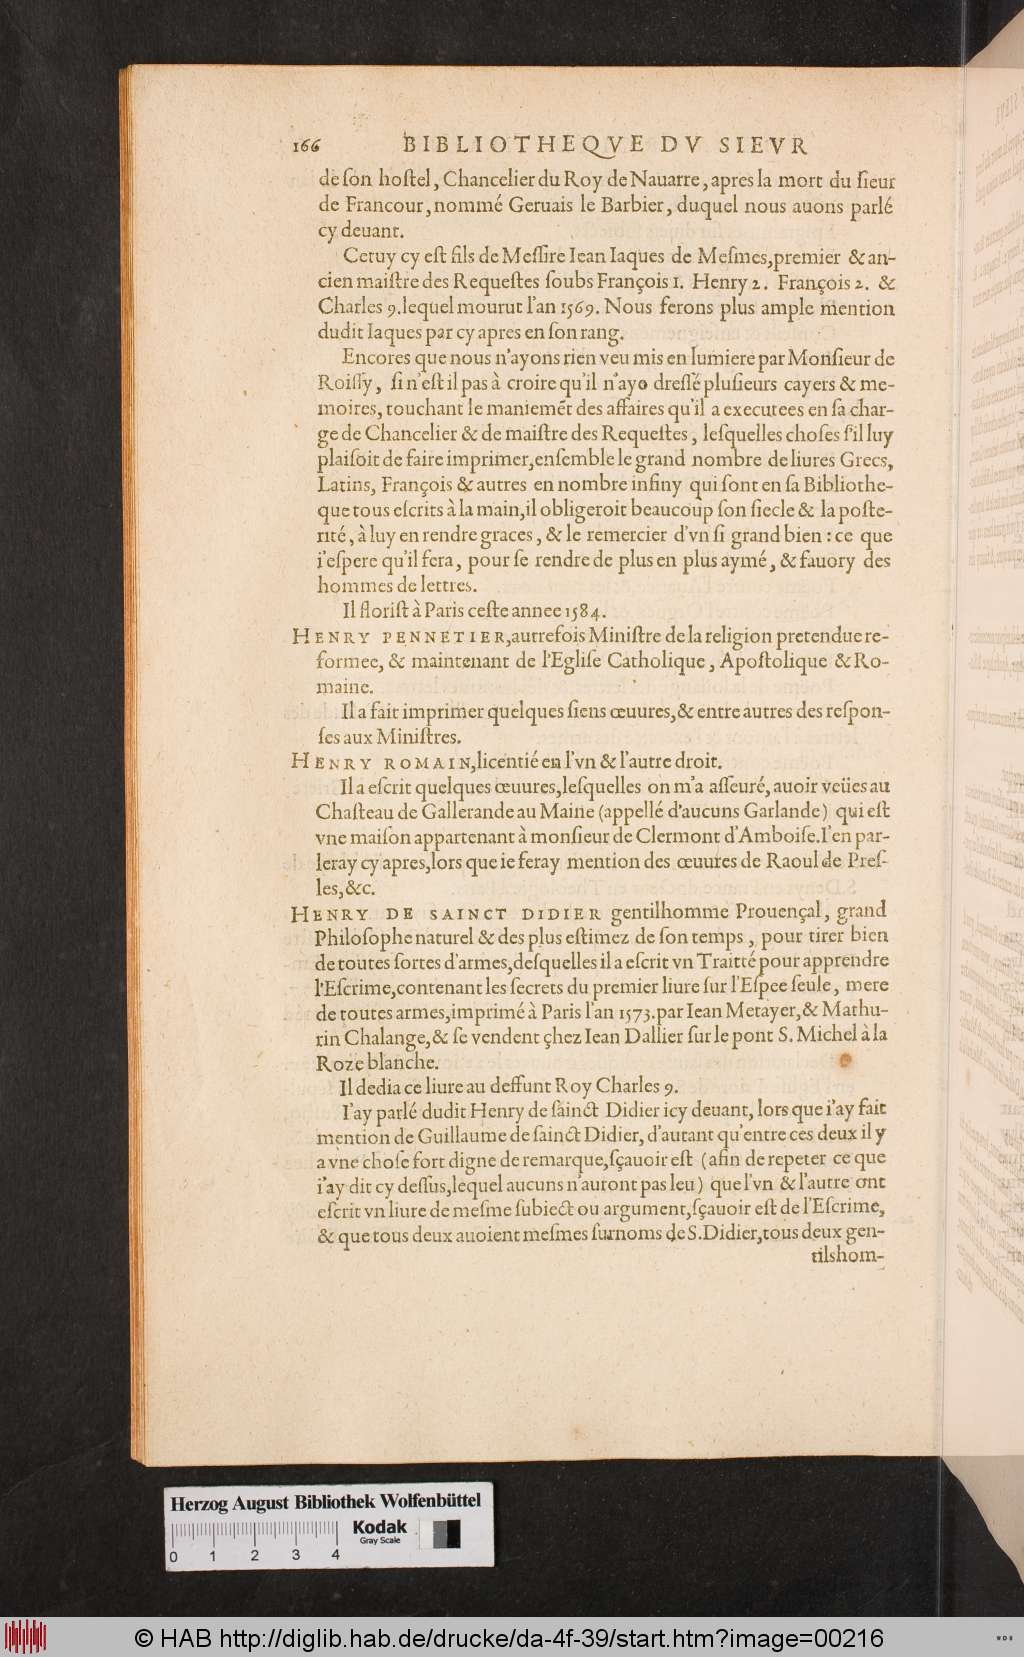 166 BIBLIOTHEQVE DV SIEVR
de ſon hoſtel, Chancelier du Roy de Nauarre, apres la mort du ſieur
de Francour, nommé Geruais le Barbier, duquel nous auons parlé
cy deuant.
Cetuy cy eſt fils de Meſſire Iean Iaques de Meſmes, premier & an-
cien maiſtre des Requeſtes ſoubs François 1. Henry 2. François 2. &
Charles 9. lequel mourut l'an 1569. Nous ferons plus ample mention
dudit Iaques par cy apres en ſon rang.
Encores que nous n'ayons rien veu mis en lumiere par Monſieur de
Roiſſy, ſi n'eſt il pas à croire qu'il n'aye dreſſé pluſieurs cayers & me-
moires, touchant le maniemẽt des affaires qu'il a executees en ſa char-
ge de Chancelier & de maiſtre des Requeſtes, leſquelles choſes ſ'il luy
plaiſoit de faire imprimer, enſemble le grand nombre de liures Grecs,
Latins, François & autres en nombre infiny qui ſont en ſa Bibliothe-
que tous eſcrits à la main, il obligeroit beaucoup ſon ſiecle & la poſte-
rité, à luy en rendre graces, & le remercier d'vn ſi grand bien : ce que
i'eſpere qu'il fera, pour ſe rendre de plus en plus aymé, & fauory des
hommes de lettres.
Il floriſt à Paris ceſte annee 1584.
HENRY PENNETIER, autrefois Miniſtre de la religion pretendue re-
formee, & maintenant de l'Egliſe Catholique, Apoſtolique & Ro-
maine.
Il a fait imprimer quelques ſiens œuures, & entre autres des reſpon-
ſes aux Miniſtres.
HENRY ROMAIN, licentié en l'vn & l'autre droit.
Il a eſcrit quelques œuures, leſquelles on m'a aſſeuré, auoir veües au
Chaſteau de Gallerande au Maine (appellé d'aucuns Garlande) qui eſt
vne maiſon appartenant à monſieur de Clermont d'Amboiſe. I'en par-
leray cy apres, lors que ie feray mention des œuures de Raoul de Preſ-
les, &c.
HENRY DE SAINCT DIDIER gentilhomme Prouençal, grand
Philoſophe naturel & des plus eſtimez de ſon temps, pour tirer bien
de toutes ſortes d'armes, deſquelles il a eſcrit vn Traitté pour apprendre
l'Eſcrime, contenant les ſecrets du premier liure ſur l'Eſpee ſeule, mere
de toutes armes, imprimé à Paris l'an 1573. par Iean Metayer, & Mathu-
rin Chalange, & ſe vendent çhez Iean Dallier ſur le pont S. Michel à la
Roze blanche.
Il dedia ce liure au deffunt Roy Charles 9.
I'ay parlé dudit Henry de ſainct Didier icy deuant, lors que i'ay fait
mention de Guillaume de ſainct Didier, d'autant qu'entre ces deux il y
a vne choſe fort digne de remarque, ſçauoir eſt (afin de repeter ce que
i'ay dit cy deſſus, lequel aucuns n'auront pas leu) que l'vn & l'autre ont
eſcrit vn liure de meſme ſubiect ou argument, ſçauoir eſt de l'Eſcrime,
& que tous deux auoient meſmes ſurnoms de S. Didier, tous deux gen-
tilshom-
Herzog August Bibliothek Wolfenbüttel
Kodak
Gray Scale
0 1 2 3 4
© HAB http://diglib.hab.de/drucke/da-4f-39/start.htm?image=00216